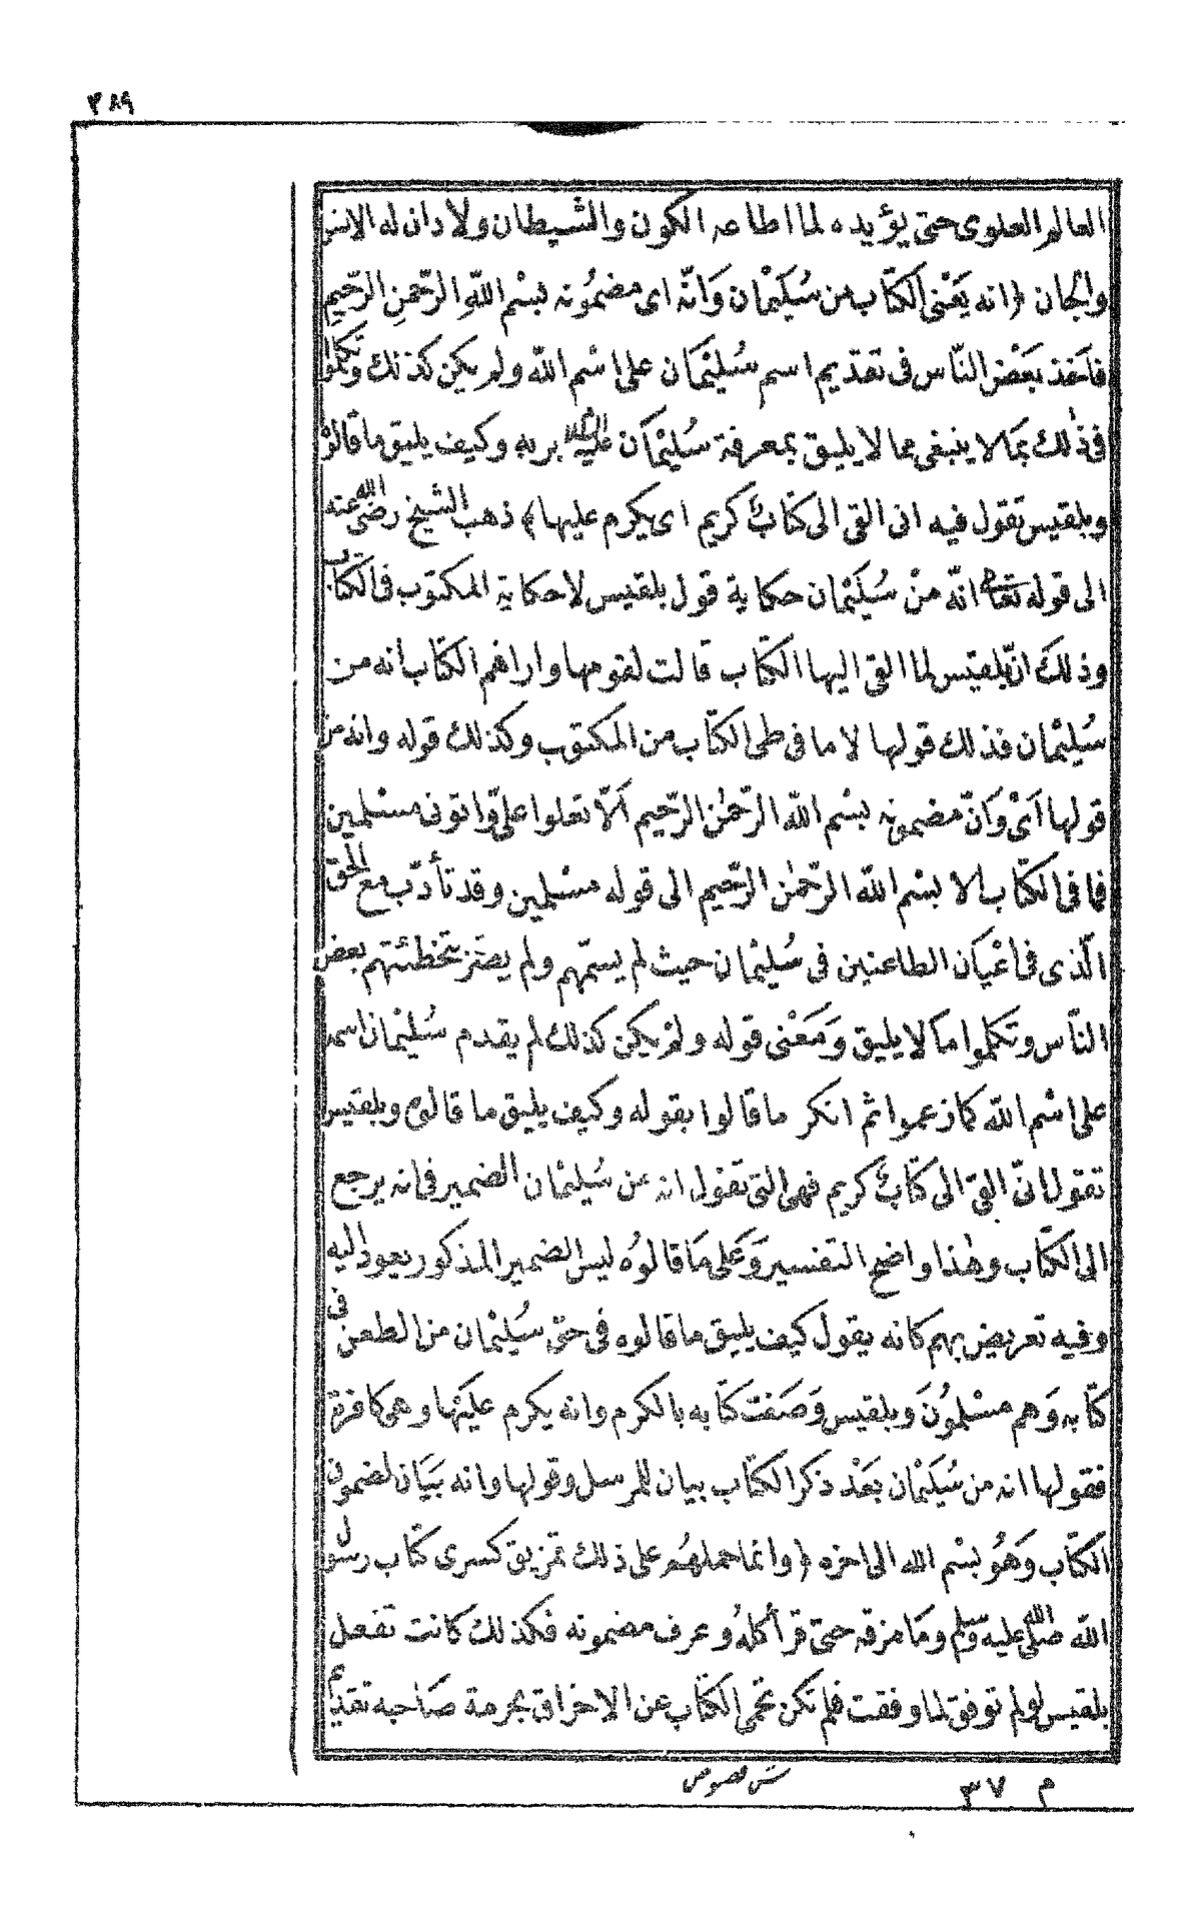 ٣٨٩
العالم العلوى حتى يؤيده لما اطاعه الكون والشيطان ولا دان له الانس
والجان ﴿ انه يَعْنى الكتاب من سُليْمان وَانّه اى مضمُونه بسْم اللّهِ الرّحمنِ الرّحيمِ
فاَخذ بَعْض النّاس فى تقدّيم اسم سُليْمان على اسْم اللّه ولم يكن كذلك وتكلموا
فى ذٰلك بمَا لا ينبغى مما لا يليق بمعرفة سُليْمَان عليه السلام بربه وكيف يليق ما قالوْ
وبلقيس تقول فيه انى القى الى كتَابٌ كريم اى يكرم عليها ﴾ ذهب الشيخ رضى الله عنه
الى قوله تعا انّه منْ سُليْمان حكاية قول بلقيس لا حكاية المكتوب فى الكتاب
وذلكَ انّ بلقيس لما القى اليها الكتاب قالت لقومها واراهم الكتاب انه من
سُليْمان فذلك قولها لا ما فى طى الكتاب من المكتوب وكذلك قوله وانه من
قولها اَىْ وَانّ مضمونه بسْم اللّه الرّحمٰن الرّحيم اَلاّ تعلوا علىّ واتونى مسْلمين
فما فى الكتاب الا بسْم اللّه الرّحمٰن الرّحيم الى قوله مسْلمين وقد تأدّب مع الحق
الّذى فى اعْيَان الطاعنين فى سُليْمان حيث لم يسمّهم ولم يصرّح بتخطئتهم بعض
النّاس وتكلموا مَا لا يليق وَمَعْنى قوله ولمْ يكن كذلك لم يقدم سُليْمان اسمه
على اسْم اللّه كما زعموا ثم انكر ما قالوا بقوله وكيف يليق ما قالوه وبلقيس
تقول انّ القى الى كتَابٌ كريم فهى التى تقول انه من سُليْمان الضمير فى انه يرجع
الى الكتاب وهٰذا واضح التفسير وَعَلى مَا قالوُه ليس الضمير المذكور يعود اليه
وفيه تعريض بهم كانه يقول كيف يليق ما قالوه فى حق سُليْمان من الطعن فى
كتابه وَهم مسْلمُونَ وبلقيس وَصَفت كتابه بالكرم وانه يكرم عليْها وهى كافرة
فقولها انه من سُليْمان بَعْد ذكر الكتاب بيان للمرسل وقولها وانه بَيَان لمضمون
الكتاب وَهُو بسْم اللّه الى اخره ﴿ وانما حملهُم على ذلك تمزيق كسرى كتاب رسول
اللّه صلى الله عليه وسلم ومَا مزقه حتى قرأ كلهُ وعرف مضمونه فكذلك كانت تفعل
بلقيس لو لم توفق لما وفقت فلم تكن تحمى الكتاب عن الاخراق بحرمة صَاحبه تقديم
م ٣٧
شرح فصوص